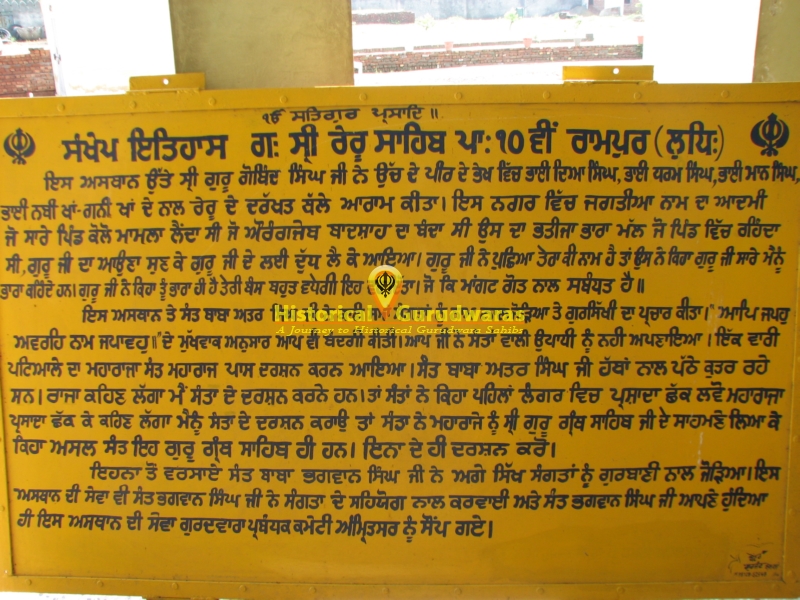 ੴ ਸਤਿਗੁਰ ਪ੍ਰਸਾਦਿ ॥
ਸੰਖੇਪ ਇਤਿਹਾਸ ਗ: ਸ੍ਰੀ ਰੇਰੂ ਸਾਹਿਬ ਪਾ: 10 ਵੀਂ ਰਾਮਪੁਰ (ਲੁਧਿ:)
ਇਸ ਅਸਥਾਨ ਉੱਤੇ ਸ੍ਰੀ ਗੁਰੂ ਗੋਬਿੰਦ ਸਿੰਘ ਜੀ ਨੇ ਉੱਚ ਦੇ ਪੀਰ ਦੇ ਭੇਖ ਵਿੱਚ ਭਾਈ ਦਿਆ ਸਿੰਘ, ਭਾਈ ਧਰਮ ਸਿੰਘ, ਭਾਈ ਮਾਨ ਸਿੰਘ,
ਭਾਈ ਨਬੀ ਖਾਂ-ਗਨੀ ਖਾਂ ਦੇ ਨਾਲ ਰੇਰੂ ਦੇ ਦਰੱਖਤ ਥੱਲੇ ਆਰਾਮ ਕੀਤਾ। ਇਸ ਨਗਰ ਵਿੱਚ ਜਗਤੀਆ ਨਾਮ ਦਾ ਆਦਮੀ
ਜੋ ਸਾਰੇ ਪਿੰਡ ਕੋਲੋ ਮਾਮਲਾ ਲੈਂਦਾ ਸੀ ਜੋ ਔਰੰਗਜੇਬ ਬਾਦਸ਼ਾਹ ਦਾ ਬੰਦਾ ਸੀ ਉਸ ਦਾ ਭਤੀਜਾ ਭਾਰਾ ਮੱਲ ਜੋ ਪਿੰਡ ਵਿੱਚ ਰਹਿੰਦਾ
ਸੀ, ਗੁਰੂ ਜੀ ਦਾ ਆਉਣਾ ਸੁਣ ਕੇ ਗੁਰੂ ਜੀ ਦੇ ਲਈ ਦੁੱਧ ਲੈ ਕੇ ਆਇਆ। ਗੁਰੂ ਜੀ ਨੇ ਪੁਛਿਆ ਤੇਰਾ ਕੀ ਨਾਮ ਹੈ ਤਾਂ ਉਸ ਨੇ ਕਿਹਾ ਗੁਰੂ ਜੀ ਸਾਰੇ ਮੈਨੂੰ
ਭਾਰਾ ਕਹਿੰਦੇ ਹਨ। ਗੁਰੂ ਜੀ ਨੇ ਕਿਹਾ ਤੂੰ ਭਾਰਾ ਹੀ ਹੈ ਤੇਰੀ ਬੰਸ ਬਹੁਤ ਵਧੇਗੀ ਇਹ ਜੋ ਕਿ ਮਾਂਗਟ ਗੋਤ ਨਾਲ ਸਬੰਧਤ ਹੈ॥
ਇਸ ਅਸਥਾਨ ਤੇ ਸੰਤ ਬਾਬਾ ਅਤਰ ਤੇ ਗੁਰਸਿੱਖੀ ਦਾ ਪ੍ਰਚਾਰ ਕੀਤਾ। "ਆਪਿ ਜਪਹੁ
ਅਵਰਹਿ ਨਾਮ ਜਪਾਵਹੁ॥" ਦੇ ਮੁੱਖਵਾਕ ਅਨੁਸਾਰ ਆਪ ਵੀ ਬੰਦਗੀ ਕੀਤੀ। ਆਪ ਜੀ ਨੇ ਸੰਤਾਂ ਵਾਲੀ ਉਪਾਧੀ ਨੂੰ ਨਹੀ ਅਪਣਾਇਆ । ਇੱਕ ਵਾਰੀ
ਪਟਿਆਲੇ ਦਾ ਮਹਾਰਾਜਾ ਸੰਤ ਮਹਾਰਾਜ ਪਾਸ ਦਰਸ਼ਨ ਕਰਨ ਆਇਆ। ਸੰਤ ਬਾਬਾ ਅਤਰ ਸਿੰਘ ਜੀ ਹੱਥਾਂ ਨਾਲ ਪੱਠੇ ਕੁਤਰ ਰਹੇ
ਸਨ। ਰਾਜਾ ਕਹਿਣ ਲੱਗਾ ਮੈਂ ਸੰਤਾ ਦੇ ਦਰਸ਼ਨ ਕਰਨੇ ਹਨ। ਤਾਂ ਸੰਤਾਂ ਨੇ ਕਿਹਾ ਪਹਿਲਾਂ ਲੰਗਰ ਵਿਚ ਪ੍ਰਸ਼ਾਦਾ ਛੱਕ ਲਵੋ ਮਹਾਰਾਜਾ
ਪ੍ਰਸ਼ਾਦਾ ਛੱਕ ਕੇ ਕਹਿਣ ਲੱਗਾ ਮੈਨੂੰ ਸੰਤਾ ਦੇ ਦਰਸ਼ਨ ਕਰਾਉ ਤਾਂ ਸੰਤਾ ਨੇ ਮਹਾਰਾਜੇ ਨੂੰ ਸ੍ਰੀ ਗੁਰੂ ਗ੍ਰੰਥ ਸਾਹਿਬ ਜੀ ਦੇ ਸਾਹਮਣੇ ਲਿਆ ਕੇ
ਕਿਹਾ ਅਸਲ ਸੰਤ ਇਹ ਗੁਰੂ ਗ੍ਰੰਥ ਸਾਹਿਬ ਹੀ ਹਨ। ਇਨਾ ਦੇ ਹੀ ਦਰਸ਼ਨ ਕਰੋ।
ਇਹਨਾ ਤੋਂ ਵਰਸਾਏ ਸੰਤ ਬਾਬਾ ਭਗਵਾਨ ਸਿੰਘ ਜੀ ਨੇ ਅਗੇ ਸਿੱਖ ਸੰਗਤਾਂ ਨੂੰ ਗੁਰਬਾਣੀ ਨਾਲ ਜੋੜਿਆ। ਇਸ
ਅਸਥਾਨ ਦੀ ਸੇਵਾ ਵੀ ਸੰਤ ਭਗਵਾਨ ਸਿੰਘ ਜੀ ਨੇ ਸੰਗਤਾ ਦੇ ਸਹਿਯੋਗ ਨਾਲ ਕਰਵਾਈ ਅਤੇ ਸੰਤ ਭਗਵਾਨ ਸਿੰਘ ਜੀ ਆਪਣੇ ਹੁੰਦਿਆ
ਹੀ ਇਸ ਅਸਥਾਨ ਦੀ ਸੇਵਾ ਗੁਰਦਵਾਰਾ ਪ੍ਰਬੰਧਕ ਕਮੇਟੀ ਅੰਮ੍ਰਿਤਸਰ ਨੂੰ ਸੌਂਪ ਗਏ।
Historical Gurudwaras
A Journey to Historical Gurudwara Sahibs